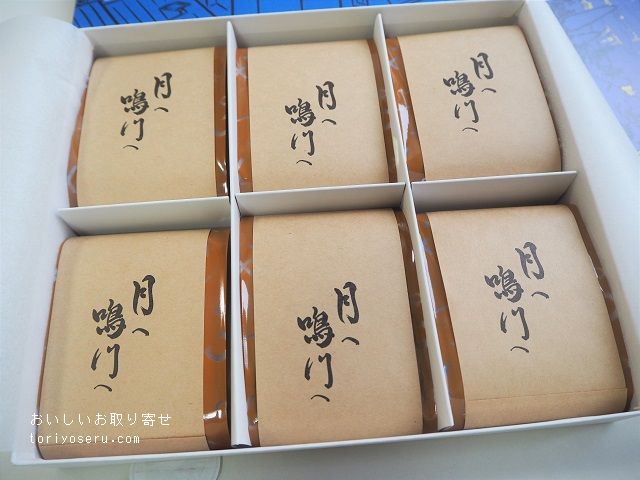 月へ
鳴川へ
月へ
鳴川へ
月へ
鳴川へ
月へ
鳴川へ
月へ
鳴川へ
月へ
鳴川へ
おいしいお取り寄せ
toriyoseru.com